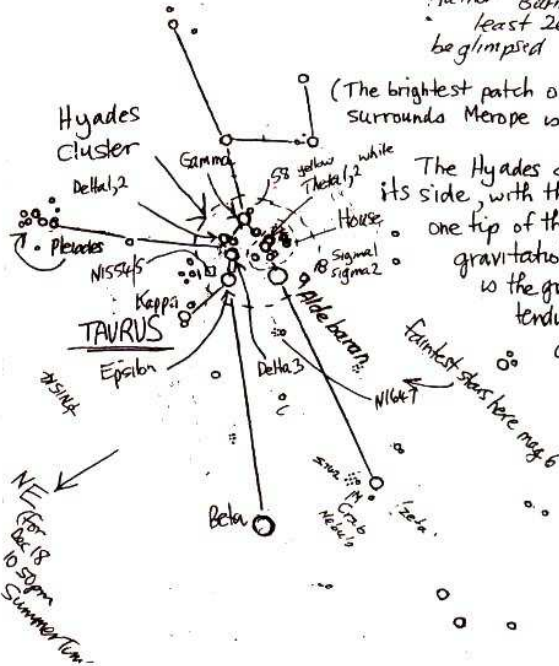 least 20
be glimpsed
(The brightest patch o
surrounds Merope is
Hyades
Cluster
Gamma
58 yellow white
Theta1,2
Delta1,2
The Hyades
its side, with th
one tip of th
House
gravitatio
is the gr
tendu
Pleiades
N1554/5
Sigma1
Sigma2
Kappa
Aldebaran
TAURUS
Epsilon
Delta3
N1647
faintest stars here mag 6
rising
NE
(for
Dec 18
10 50pm
Summer Tim
Beta
Crab
Nebula
zeta.